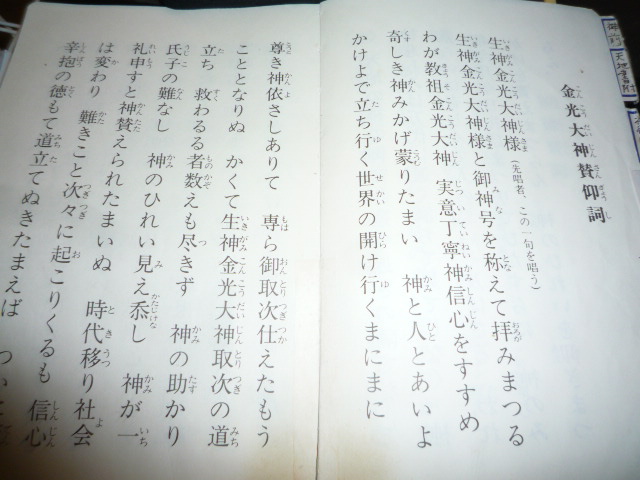 金光大神賛仰詞
生神金光大神様（先唱者、この一句を唱う）
生神金光大神様と御神号を称えて拝みまつる
わが教祖金光大神 実意丁寧神信心をすすめ
奇しき神みかげ蒙りたまい 神と人とあいよ
かけよで立ち行く世界の開け行くまにまに
尊き神依さしありて 専ら御取次仕えたもう
こととなりぬ かくて生神金光大神取次の道
立ち 救わるる者数えも尽きず 神の助かり
氏子の難なし 神のひれい見え忝し 神が一
礼申すと神賛えられたまいぬ 時代移り社会
は変わり 難きこと次々に起こりくるも 信心
辛抱の徳もて道立てぬきたまえば